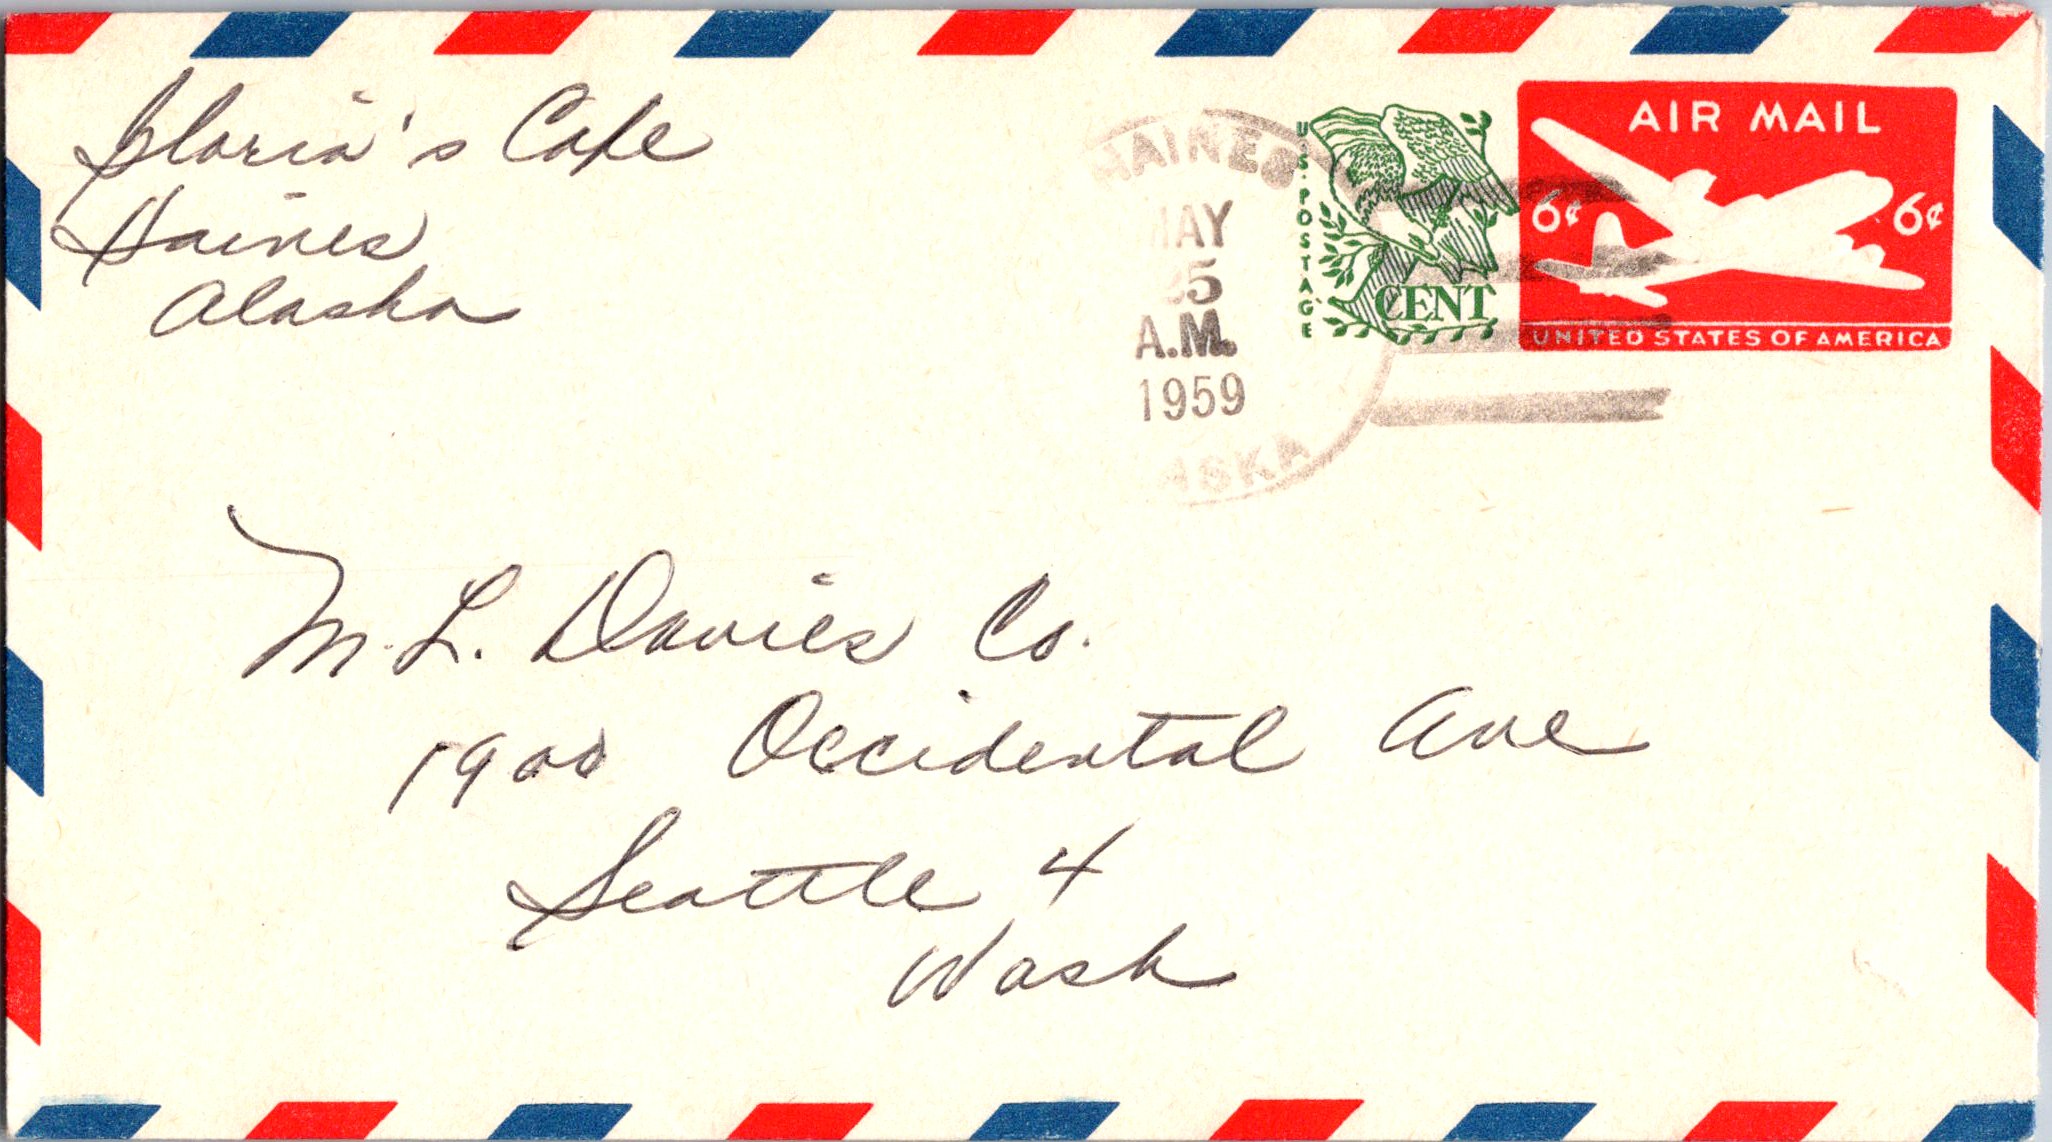 Gloria's Cafe
Haines
Alaska
HAINES
MAY
25
A.M.
1959
ASKA
U.S. POSTAGE
CENT
AIR MAIL
6¢ 6¢
UNITED STATES OF AMERICA
M. L. Davies Co.
1900 Occidental Ave
Seattle 4
Wash